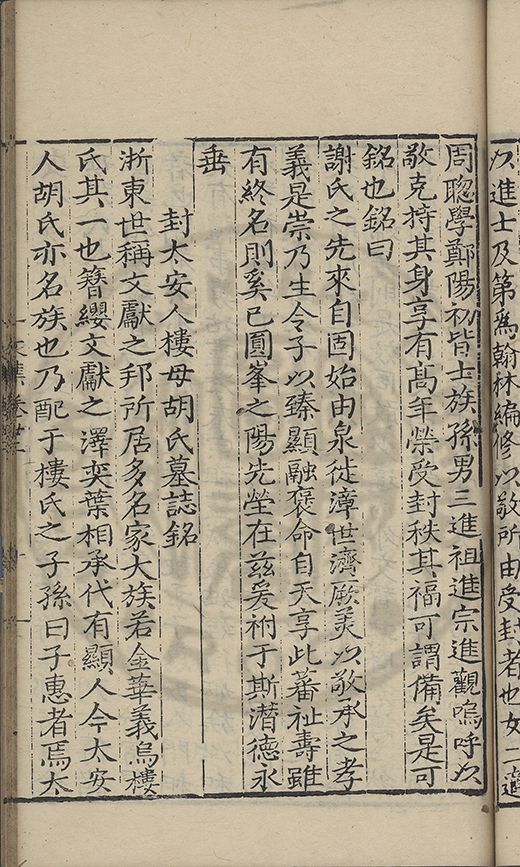 以進士及第爲翰林編修以敬所由受封者也女二適
周聦學鄭陽初皆士族孫男三進祖進宗進觀嗚呼以
敬克持其身享有髙年榮受封秩其福可謂備矣是可
銘也銘曰
謝氏之先來自固始由泉徙漳世濟厥美以敬承之孝
義是崇乃生令子以臻顯融褒命自天享此蕃祉壽雖
有終名則奚已圓峯之陽先塋在兹爰祔于斯潜德永
垂
封太安人樓母胡氏墓誌銘
浙東世稱文獻之邦所居多名家大族若金華義烏樓
氏其一也簪纓文獻之澤奕葉相承代有顯人今太安
人胡氏亦名族也乃配于樓氏之子孫曰子惠者焉太